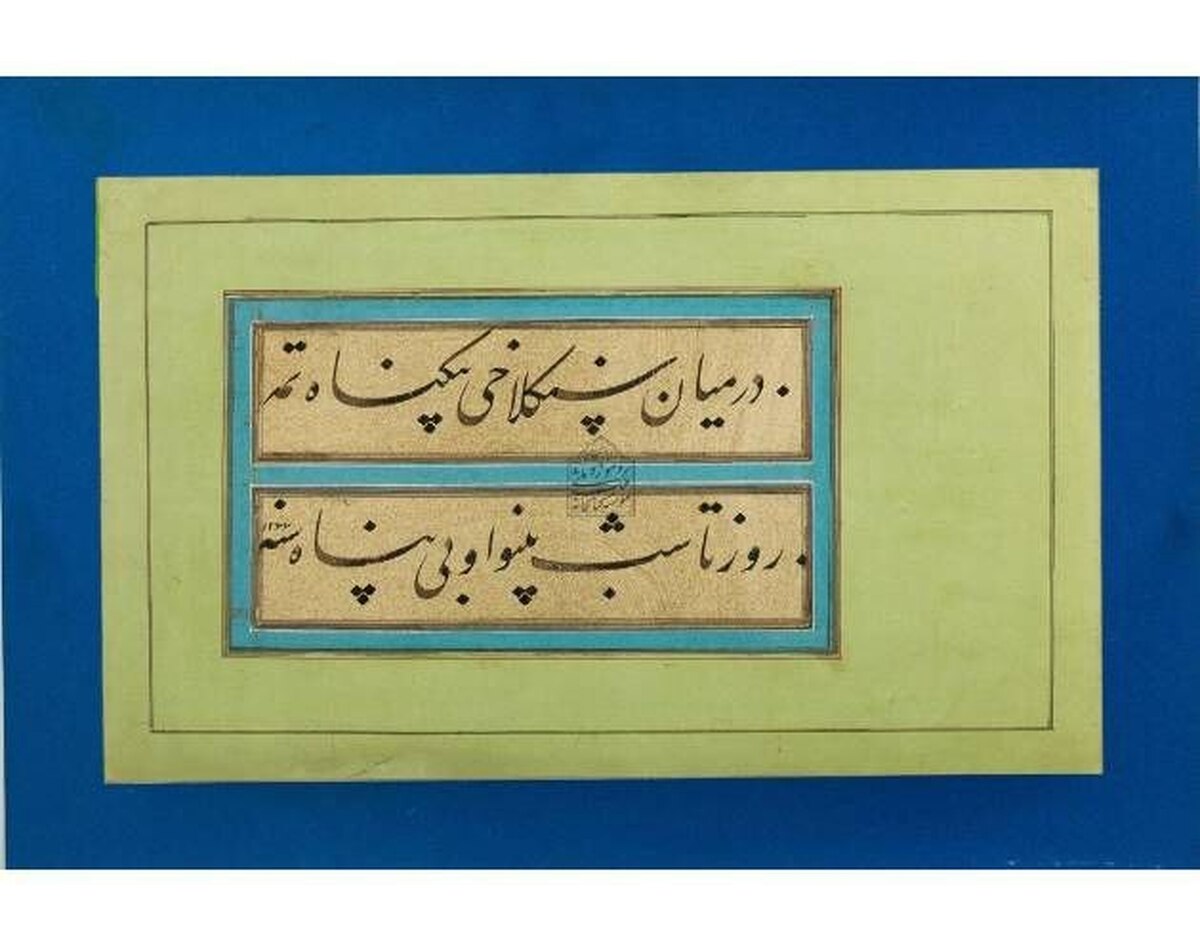 درمیان سنگلاخی بیگناه تمه
روز تا شب بینوا و بی پناه سنه